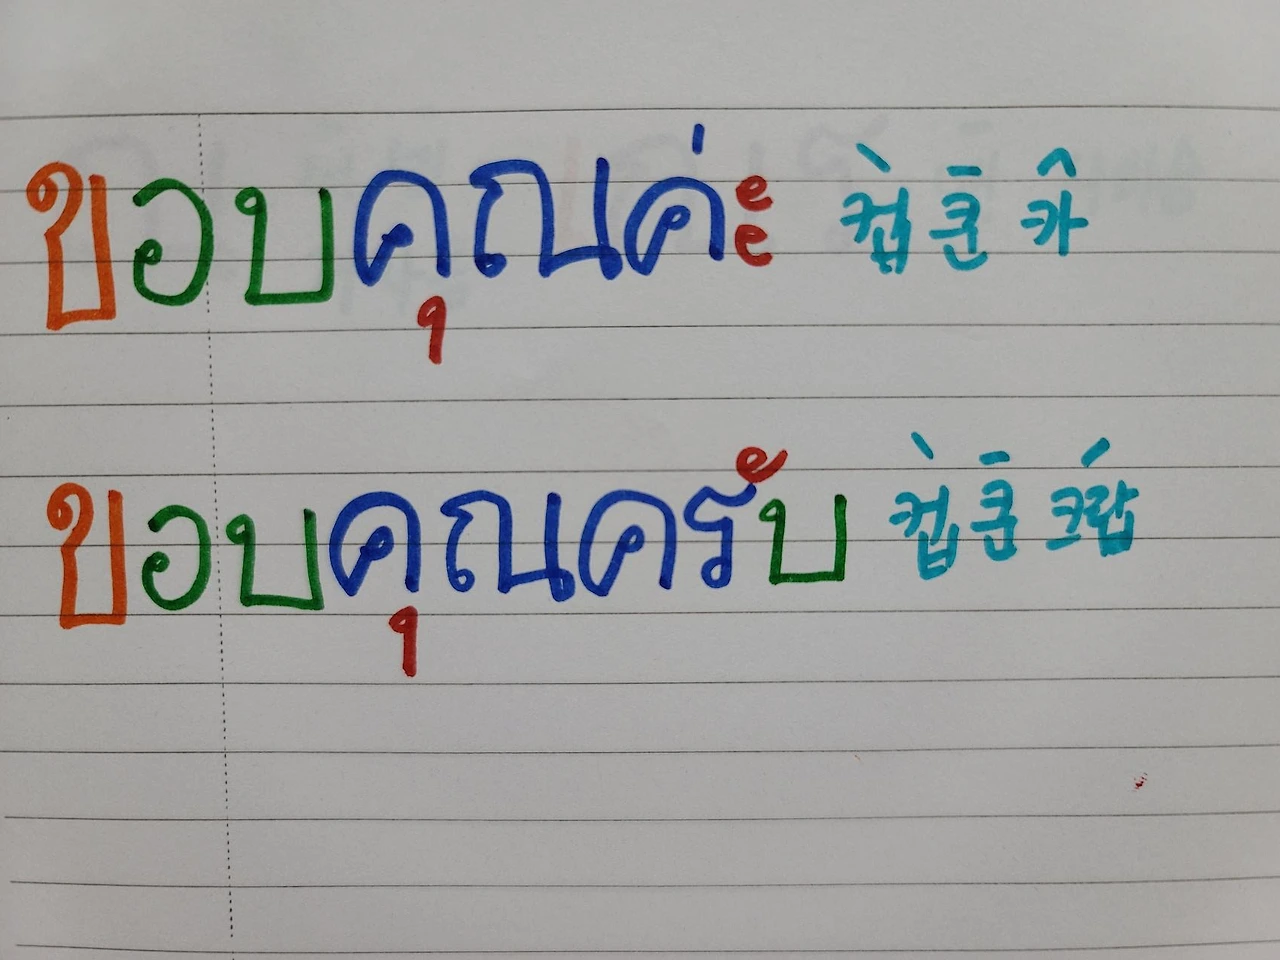 ขอบคุณค่ะ 컵 쿤 카
ขอบคุณครับ 컵 쿤 크랍